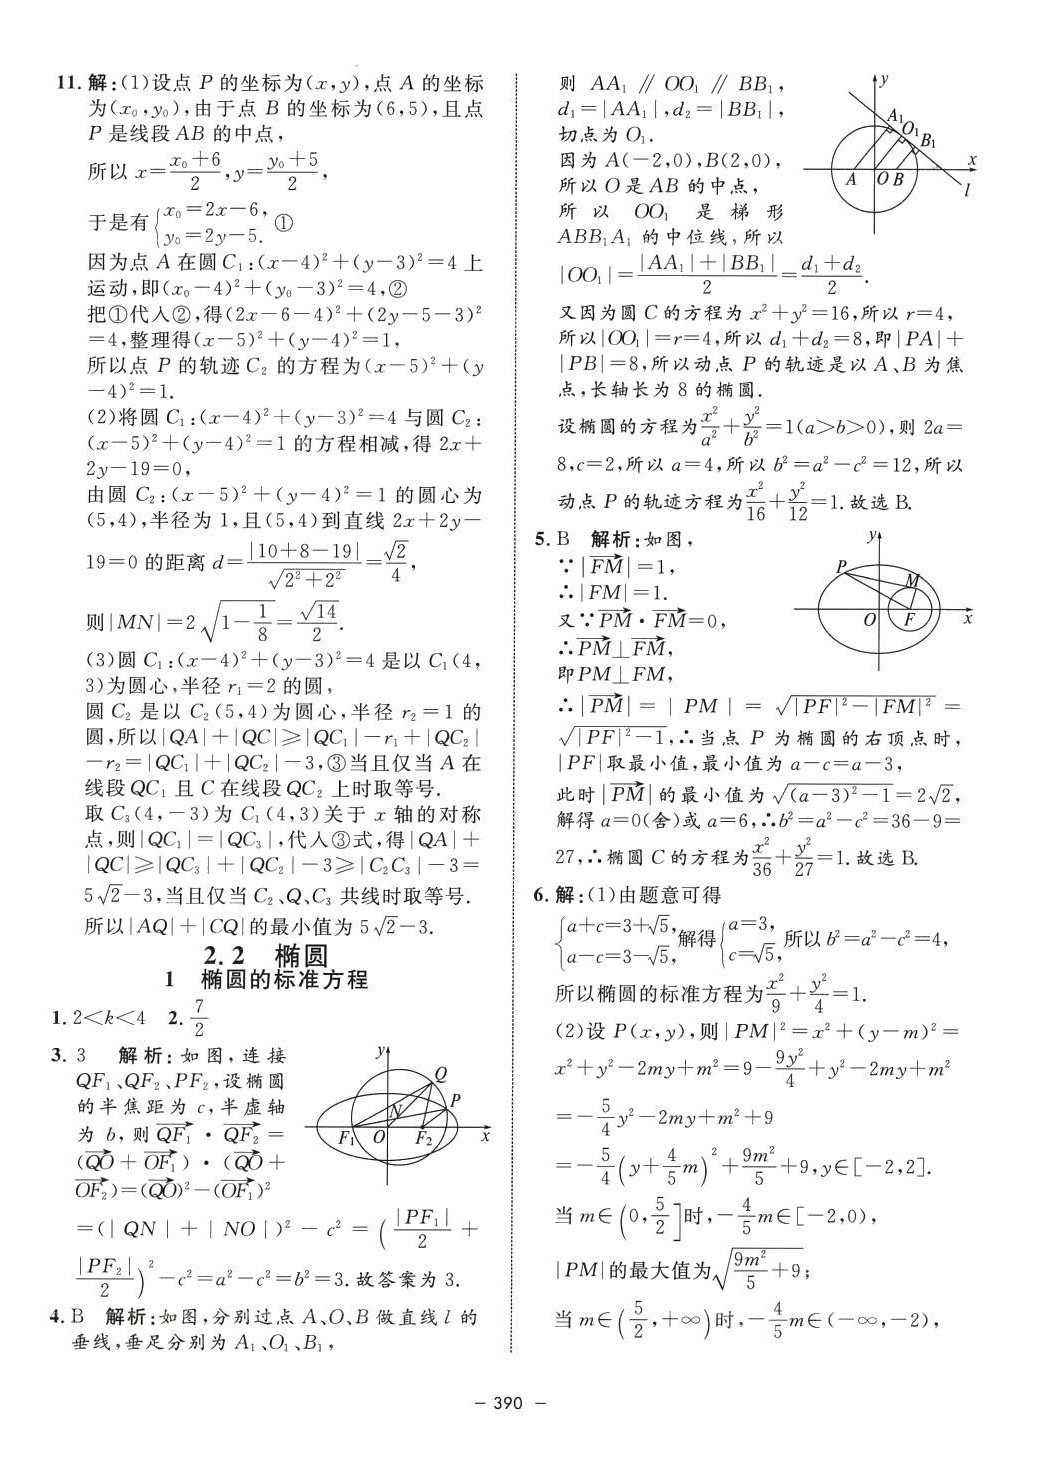 11. 解:(1)设点 P 的坐标为(x,y),点 A 的坐标
为(x₀,y₀),由于点 B 的坐标为(6,5),且点
P 是线段 AB 的中点,
所以 x=\frac{x₀+6}{2},y=\frac{y₀+5}{2},
于是有{x₀=2x-6, y₀=2y-5. ①
因为点 A 在圆 C₁:(x-4)²+(y-3)²=4 上
运动,即(x₀-4)²+(y₀-3)²=4,②
把①代入②,得(2x-6-4)²+(2y-5-3)²
=4,整理得(x-5)²+(y-4)²=1,
所以点 P 的轨迹 C₂ 的方程为(x-5)²+(y
-4)²=1.
(2)将圆 C₁:(x-4)²+(y-3)²=4 与圆 C₂:
(x-5)²+(y-4)²=1 的方程相减,得 2x+
2y-19=0,
由圆 C₂:(x-5)²+(y-4)²=1 的圆心为
(5,4),半径为 1,且(5,4)到直线 2x+2y-
19=0 的距离 d=\frac{|10+8-19|}{\sqrt{2²+2²}}=\frac{\sqrt{2}}{4},
则|MN|=2\sqrt{1-\frac{1}{8}}=\frac{\sqrt{14}}{2}.
(3)圆 C₁:(x-4)²+(y-3)²=4 是以 C₁(4,
3)为圆心,半径 r₁=2 的圆,
圆 C₂ 是以 C₂(5,4)为圆心,半径 r₂=1 的
圆,所以|QA|+|QC|≥|QC₁|-r₁+|QC₂|
-r₂=|QC₁|+|QC₂|-3,③当且仅当 A 在
线段 QC₁ 且 C 在线段 QC₂ 上时取等号.
取 C₃(4,-3)为 C₁(4,3)关于 x 轴的对称
点,则|QC₁|=|QC₃|,代入③式,得|QA|+
|QC|≥|QC₃|+|QC₂|-3≥|C₂C₃|-3=
5√2-3,当且仅当 C₂、Q、C₃ 共线时取等号.
所以|AQ|+|CQ|的最小值为 5√2-3.
2.2 椭圆
1 椭圆的标准方程
1. 2<k<4 2. \frac{7}{2}
3. 3 解析:如图,连接
QF₁、QF₂、PF₂,设椭圆
的半焦距为 c,半虚轴
为 b,则 \overrightarrow{QF₁}·\overrightarrow{QF₂}=
(\overrightarrow{QO}+\overrightarrow{OF₁})·(\overrightarrow{QO}+
\overrightarrow{OF₂})=(\overrightarrow{QO})²-(\overrightarrow{OF₁})²
=(|QN|+|NO|)²-c²=(\frac{|PF₁|}{2}+
\frac{|PF₂|}{2})²-c²=a²-c²=b²=3.故答案为 3.
y
Q
P
N
F₁ O F₂ x
4. B 解析:如图,分别过点 A、O、B 做直线 l 的
垂线,垂足分别为 A₁、O₁、B₁,
则 AA₁∥OO₁∥BB₁,
d₁=|AA₁|,d₂=|BB₁|,
切点为 O₁.
因为 A(-2,0),B(2,0),
所以 O 是 AB 的中点,
所以 OO₁ 是梯形
ABB₁A₁ 的中位线,所以
|OO₁|=\frac{|AA₁|+|BB₁|}{2}=\frac{d₁+d₂}{2}.
y
A₁
O₁
B₁
x
A O B
l
又因为圆 C 的方程为 x²+y²=16,所以 r=4,
所以|OO₁|=r=4,所以 d₁+d₂=8,即|PA|+
|PB|=8,所以动点 P 的轨迹是以 A、B 为焦
点,长轴长为 8 的椭圆.
设椭圆的方程为\frac{x²}{a²}+\frac{y²}{b²}=1(a>b>0),则 2a=
8,c=2,所以 a=4,所以 b²=a²-c²=12,所以
动点 P 的轨迹方程为\frac{x²}{16}+\frac{y²}{12}=1.故选 B.
5. B 解析:如图,
∵|\overrightarrow{FM}|=1,
∴|FM|=1.
又∵\overrightarrow{PM}·\overrightarrow{FM}=0,
∴\overrightarrow{PM}⊥\overrightarrow{FM},
即 PM⊥FM,
y
P
M
O F x
∴|\overrightarrow{PM}|=|PM|=\sqrt{|PF|²-|FM|²}=
\sqrt{|PF|²-1},∴当点 P 为椭圆的右顶点时,
|PF|取最小值,最小值为 a-c=a-3,
此时|\overrightarrow{PM}|的最小值为\sqrt{(a-3)²-1}=2√2,
解得 a=0(舍)或 a=6,∴b²=a²-c²=36-9=
27,∴椭圆 C 的方程为\frac{x²}{36}+\frac{y²}{27}=1.故选 B.
6. 解:(1)由题意可得
{a+c=3+√5, a-c=3-√5, 解得{a=3, c=√5, 所以 b²=a²-c²=4,
所以椭圆的标准方程为\frac{x²}{9}+\frac{y²}{4}=1.
(2)设 P(x,y),则|PM|²=x²+(y-m)²=
x²+y²-2my+m²=9-\frac{9y²}{4}+y²-2my+m²
=-\frac{5}{4}y²-2my+m²+9
=-\frac{5}{4}(y+\frac{4}{5}m)²+\frac{9m²}{5}+9,y∈[-2,2].
当 m∈(0,\frac{5}{2}]时,-\frac{4}{5}m∈[-2,0),
|PM|的最大值为\sqrt{\frac{9m²}{5}+9};
当 m∈(\frac{5}{2},+∞)时,-\frac{4}{5}m∈(-∞,-2),
- 390 -